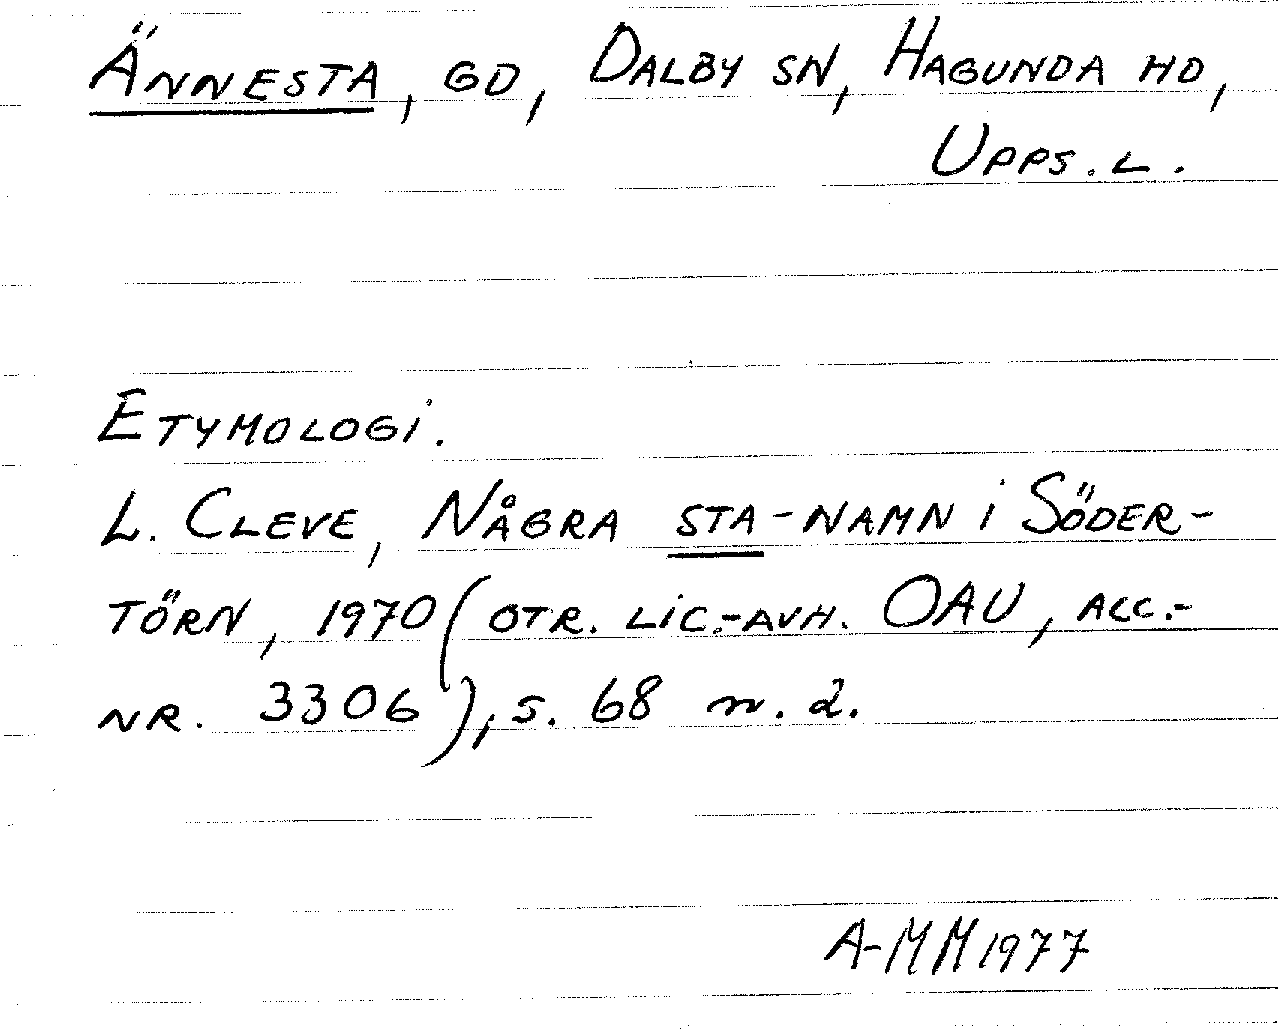 Ännesta, gd, Dalby sn, Hagunda hd,
Upps. l.
Etymologi.
L. Cleve, Några sta-namn i Söder-
törn, 1970 (otr. lic.-avh. OAU, acc.-
nr. 3306), s. 68 n. 2.
A-MM 1977